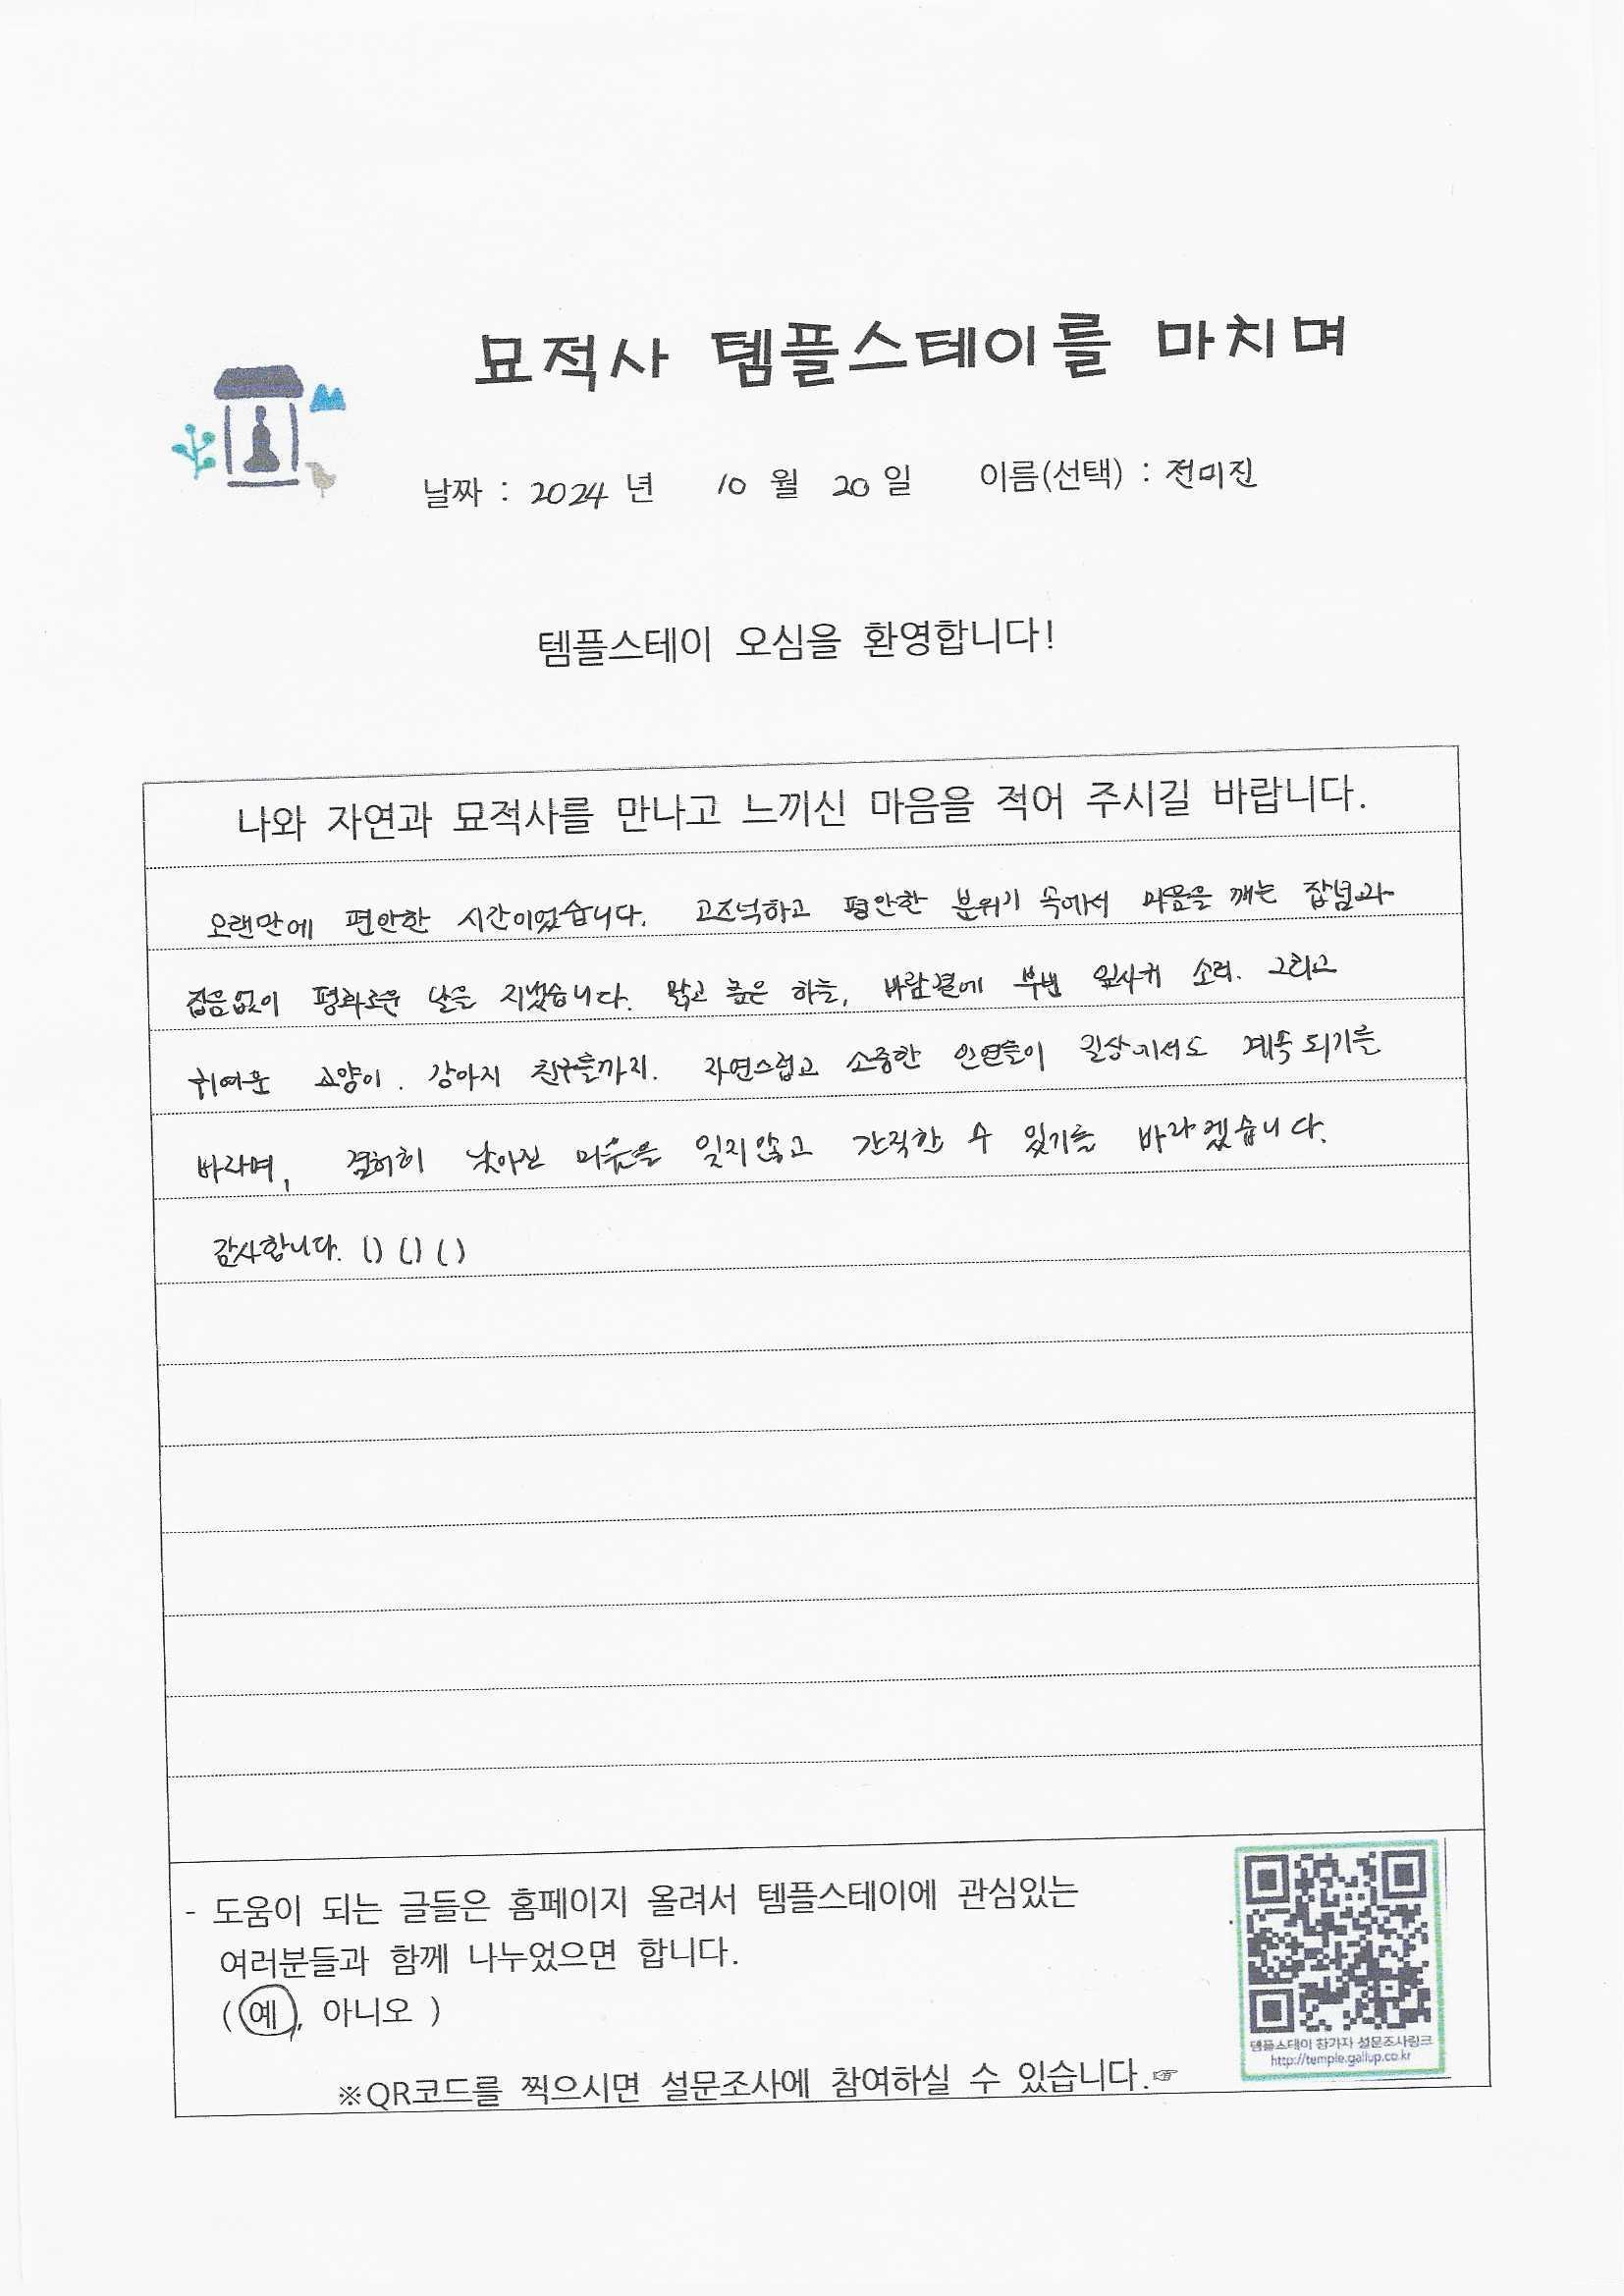 묘적사 템플스테이를 마치며
날짜 : 2024 년 10 월 20 일 이름(선택) : 전미진
템플스테이 오심을 환영합니다!
나와 자연과 묘적사를 만나고 느끼신 마음을 적어 주시길 바랍니다.
오랜만에 편안한 시간이었습니다. 고즈넉하고 평안한 분위기 속에서 마음을 깨는 잡념과
잡음없이 평화로운 날을 지냈습니다. 맑고 높은 하늘, 바람결에 잎사귀 소리. 그리고
귀여운 고양이. 강아지 친구들까지. 자연스럽고 소중한 인연들이 일상에서도 계속 되기를
바라며, 겸허히 낮아진 마음을 잊지않고 간직할 수 있기를 바라겠습니다.
감사합니다. () () ()
- 도움이 되는 글들은 홈페이지 올려서 템플스테이에 관심있는
여러분들과 함께 나누었으면 합니다.
( 예, 아니오 )
템플스테이 참가자 설문조사링크
http://temple.gallup.co.kr
※QR코드를 찍으시면 설문조사에 참여하실 수 있습니다.☞